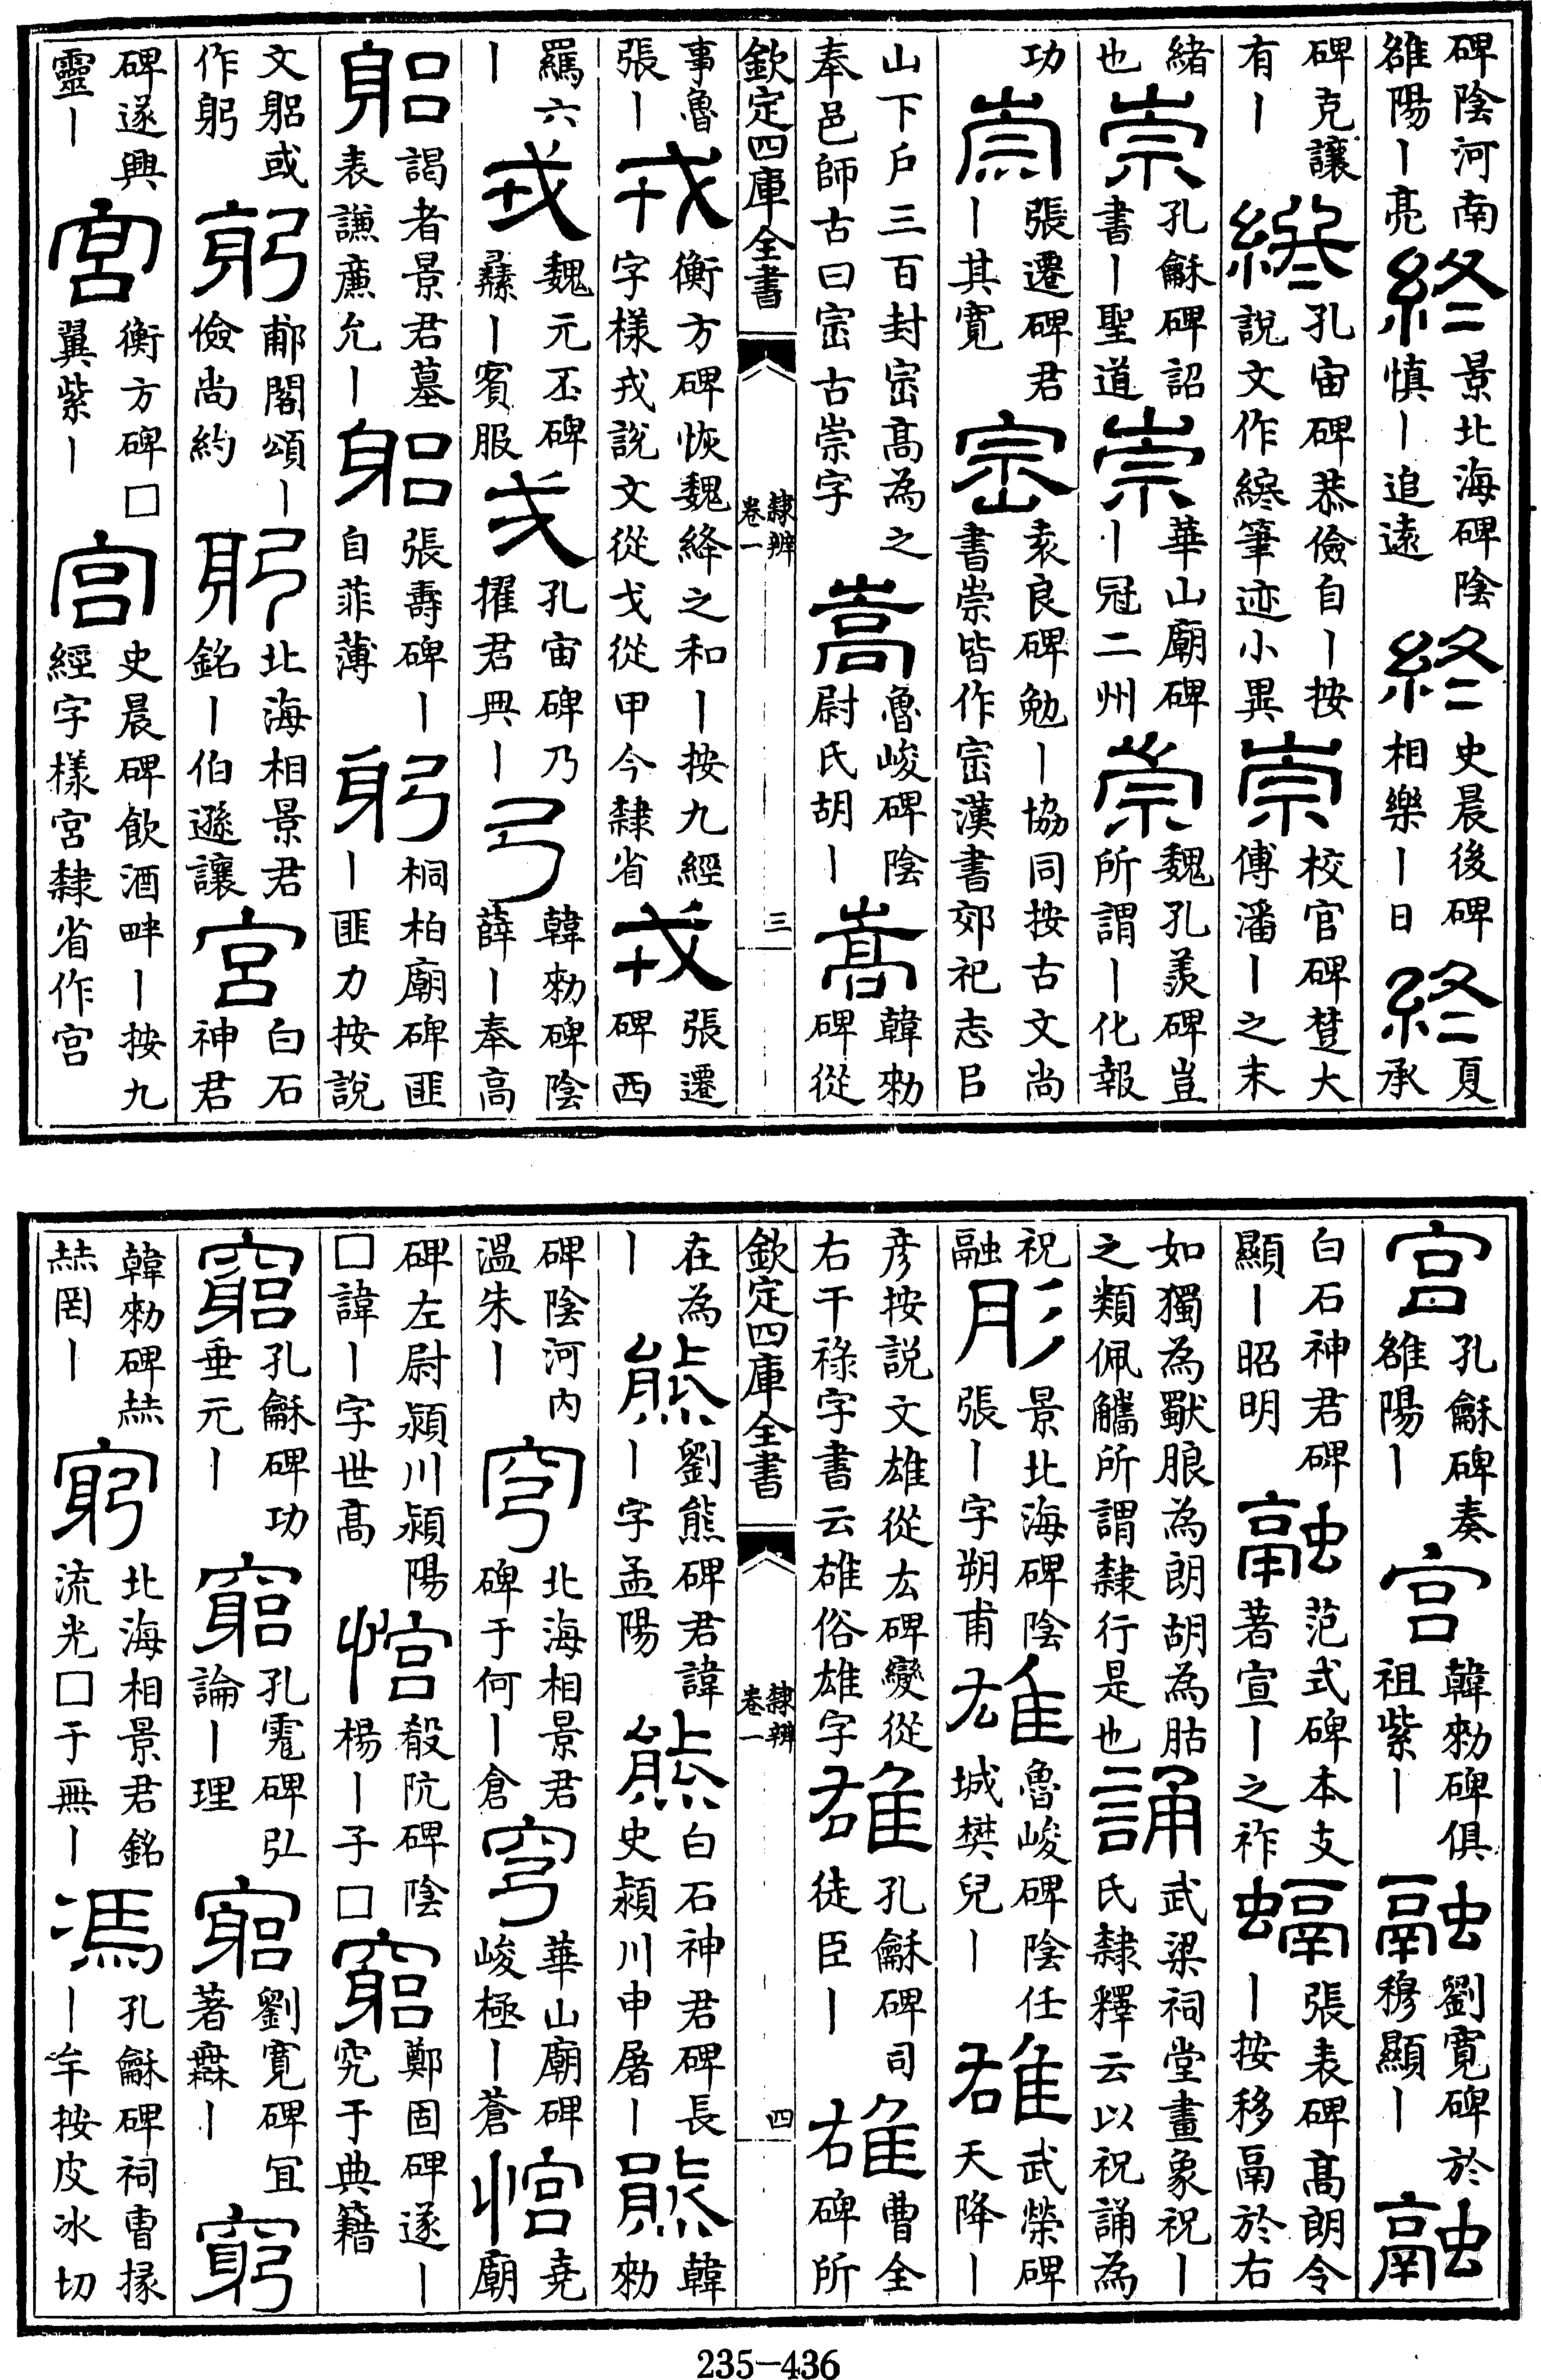 碑陰河南雒陽丨亮終景北海碑陰慎丨追遠終史晨後碑相樂丨日終夏承
碑克讓有丨終孔宙碑恭儉自丨按說文作終筆迹小異崇校官碑楚大傅潘丨之末
緒也崇孔龢碑詔書丨聖道崇華山廟碑丨冠二州崇魏孔羨碑豈所謂丨化報
功崇張遷碑君丨其寛崈袁良碑勉丨協同按古文尚書崇皆作崈漢書郊祀志㠯
山下戶三百封崈髙為之奉邑師古曰崈古崇字嵩魯峻碑陰尉氏胡丨嵩韓勑碑從
欽定四庫全書 隸辨 卷一 三
事魯張丨戎衡方碑恢魏絳之和丨按九經字樣戎說文從戈從甲今隸省戎張遷碑西
羈六丨戎魏元丕碑彞丨賓服戎孔宙碑乃擢君典丨弓韓勑碑陰薛丨奉高
躳謁者景君墓表謙亷允丨躳張壽碑丨自菲薄躬桐柏廟碑匪丨匪力按說
文躳或作躬躬郙閣頌丨儉尚約躬北海相景君銘丨伯遜讓宮白石神君
碑遂興靈丨宮衡方碑□翼紫丨宫史晨碑飲酒畔丨按九經字樣宮隸省作宫
宮孔龢碑奏雒陽丨宫韓勑碑俱祖紫丨融劉寛碑於穆顯丨融
白石神君碑顯丨昭明融范式碑本支著宣丨之祚融張表碑髙朗令丨按移鬲於右
如獨為獸朖為朗胡為䏦之類佩觿所謂隸行是也誦武梁祠堂畫象祝丨氏隸釋云以祝誦為
祝融肜景北海碑陰張丨字朔甫雄魯峻碑陰任城樊兒丨雄武榮碑天降丨
彦按說文雄從厷碑變從右干祿字書云䧺俗雄字雄孔龢碑司徒臣丨雄曹全碑所
欽定四庫全書 隸辨 卷一 四
在為丨熊劉熊碑君諱丨字孟陽熊白石神君碑長史潁川申屠丨熊韓勑
碑陰河内溫朱丨穹北海相景君碑于何丨倉穹華山廟碑峻極丨蒼悺堯廟
碑左尉潁川潁陽□諱丨字世髙悺殽阬碑陰楊丨子□窮鄭固碑遂丨究于典籍
窮孔龢碑功垂元丨窮孔霓碑弘論丨理窮劉寛碑冝著無丨窮
韓勑碑赫赫罔丨窮北海相景君銘流光□于無丨馮孔龢碑祠曹掾丨牟按皮冰切
235-436